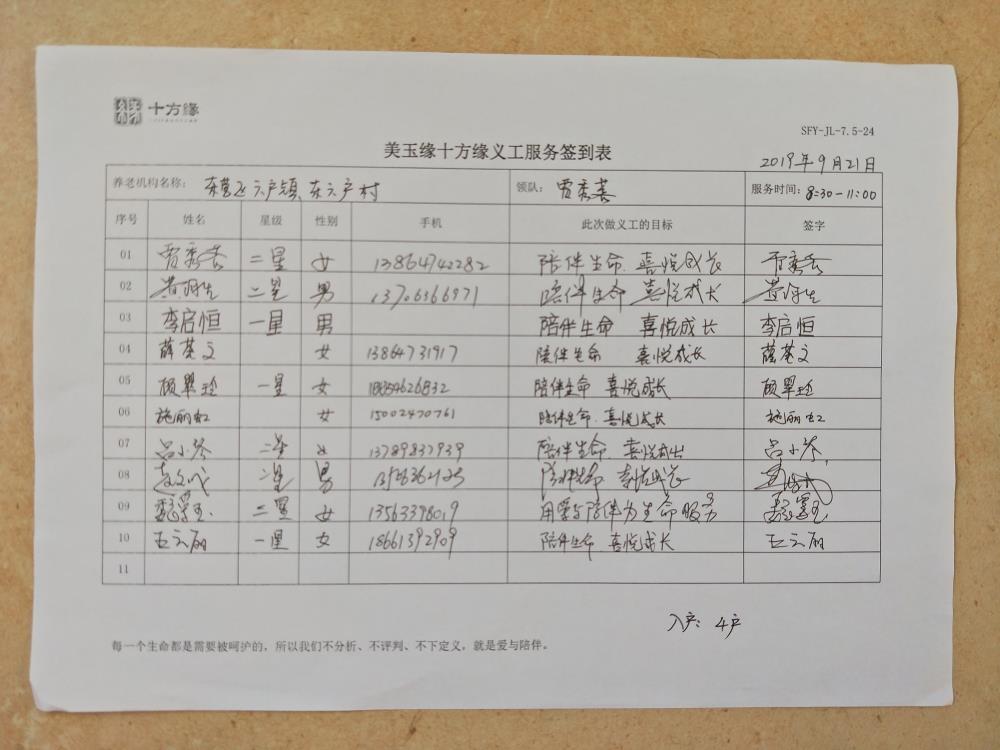 十方缘
SFY-JL-7.5-24
美玉缘十方缘义工服务签到表
2019年9月21日
养老机构名称: 六户镇、东六户村 领队: 贾秀芸 服务时间: 8:30-11:00
序号 姓名 星级 性别 手机 此次做义工的目标 签字
01 贾秀芸 二星 女 13864742282 陪伴生命 喜悦成长 贾秀芸
02 二星 男 13706366971 陪伴生命 喜悦成长
03 李启恒 一星 男 陪伴生命 喜悦成长 李启恒
04 薛英文 女 13864731917 陪伴生命 喜悦成长 薛英文
05 顾翠玲 一星 女 18854626832 陪伴生命 喜悦成长 顾翠玲
06 施丽虹 女 15002470761 陪伴生命 喜悦成长 施丽虹
07 吕小芬 二星 女 13789837939 陪伴生命 喜悦成长 吕小芬
08 二星 男 陪伴生命 喜悦成长
09 二星 女 用爱与陪伴为生命服务
10 王云丽 一星 女 18661392909 陪伴生命 喜悦成长 王云丽
11
入户: 4户
每一个生命都是需要被呵护的，所以我们不分析、不评判、不下定义，就是爱与陪伴。